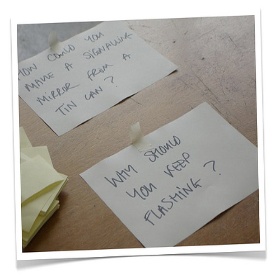 HOW COULD YOU
MAKE A SIGNALLING
MIRROR FROM A
TIN CAN?
WHY SHOULD
YOU KEEP
FLASHING?